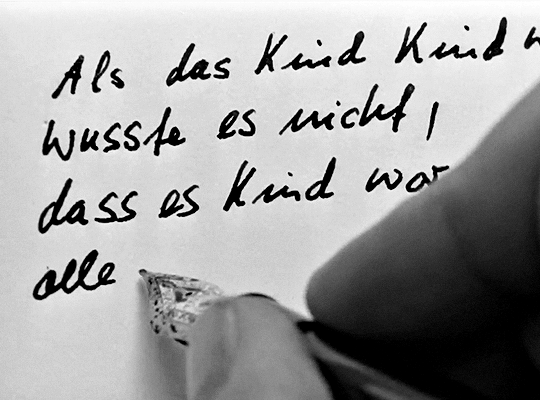 Als das Kind Kind
wusste es nicht,
dass es Kind war
alle